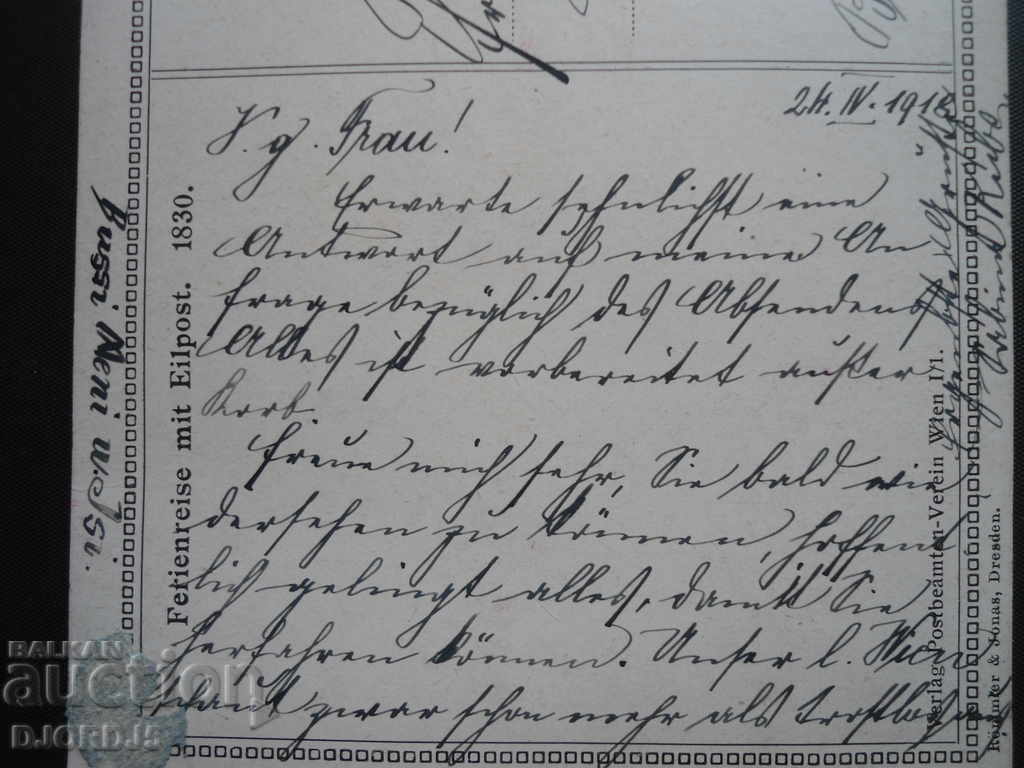 24. IV. 1918
S. g. Frau!
Erwarte sehnlichst eine
Antwort auf meine An
frage bezüglich des Absendens
Alles ist vorbereitet außer
Korb.
Freue mich sehr, Sie bald wie
dersehen zu können, hoffent
lich gelingt alles, damit Sie
herfahren können. Unser l. Wien
schaut zwar schon mehr als trostlos
Bussi Meni u. Isi.
Ferienreise mit Eilpost. 1830.
Verlag: Postbeamten-Verein Wien I/1.
& Jonas, Dresden.
BALKAN
auction
DJORD.15